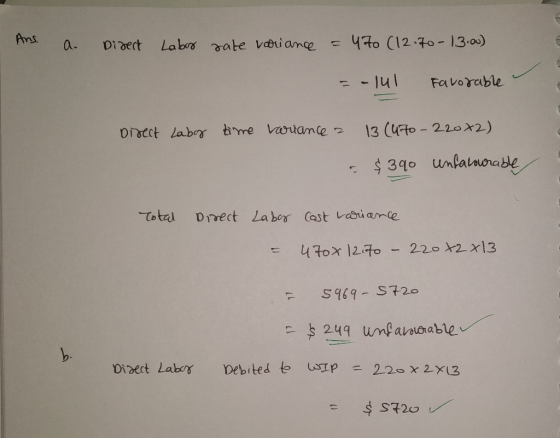 Ans a. Direct Labor rate variance = 470 (12.70 - 13.00)
= - 141 Favorable ✓
Direct Labor time variance = 13 (470 - 220 x 2)
= $ 390 unfavourable ✓
Total Direct Labor Cost variance
= 470 x 12.70 - 220 x 2 x 13
= 5969 - 5720
= $ 249 unfavourable ✓
b.
Direct Labor Debited to WIP = 220 x 2 x 13
= $ 5720 ✓